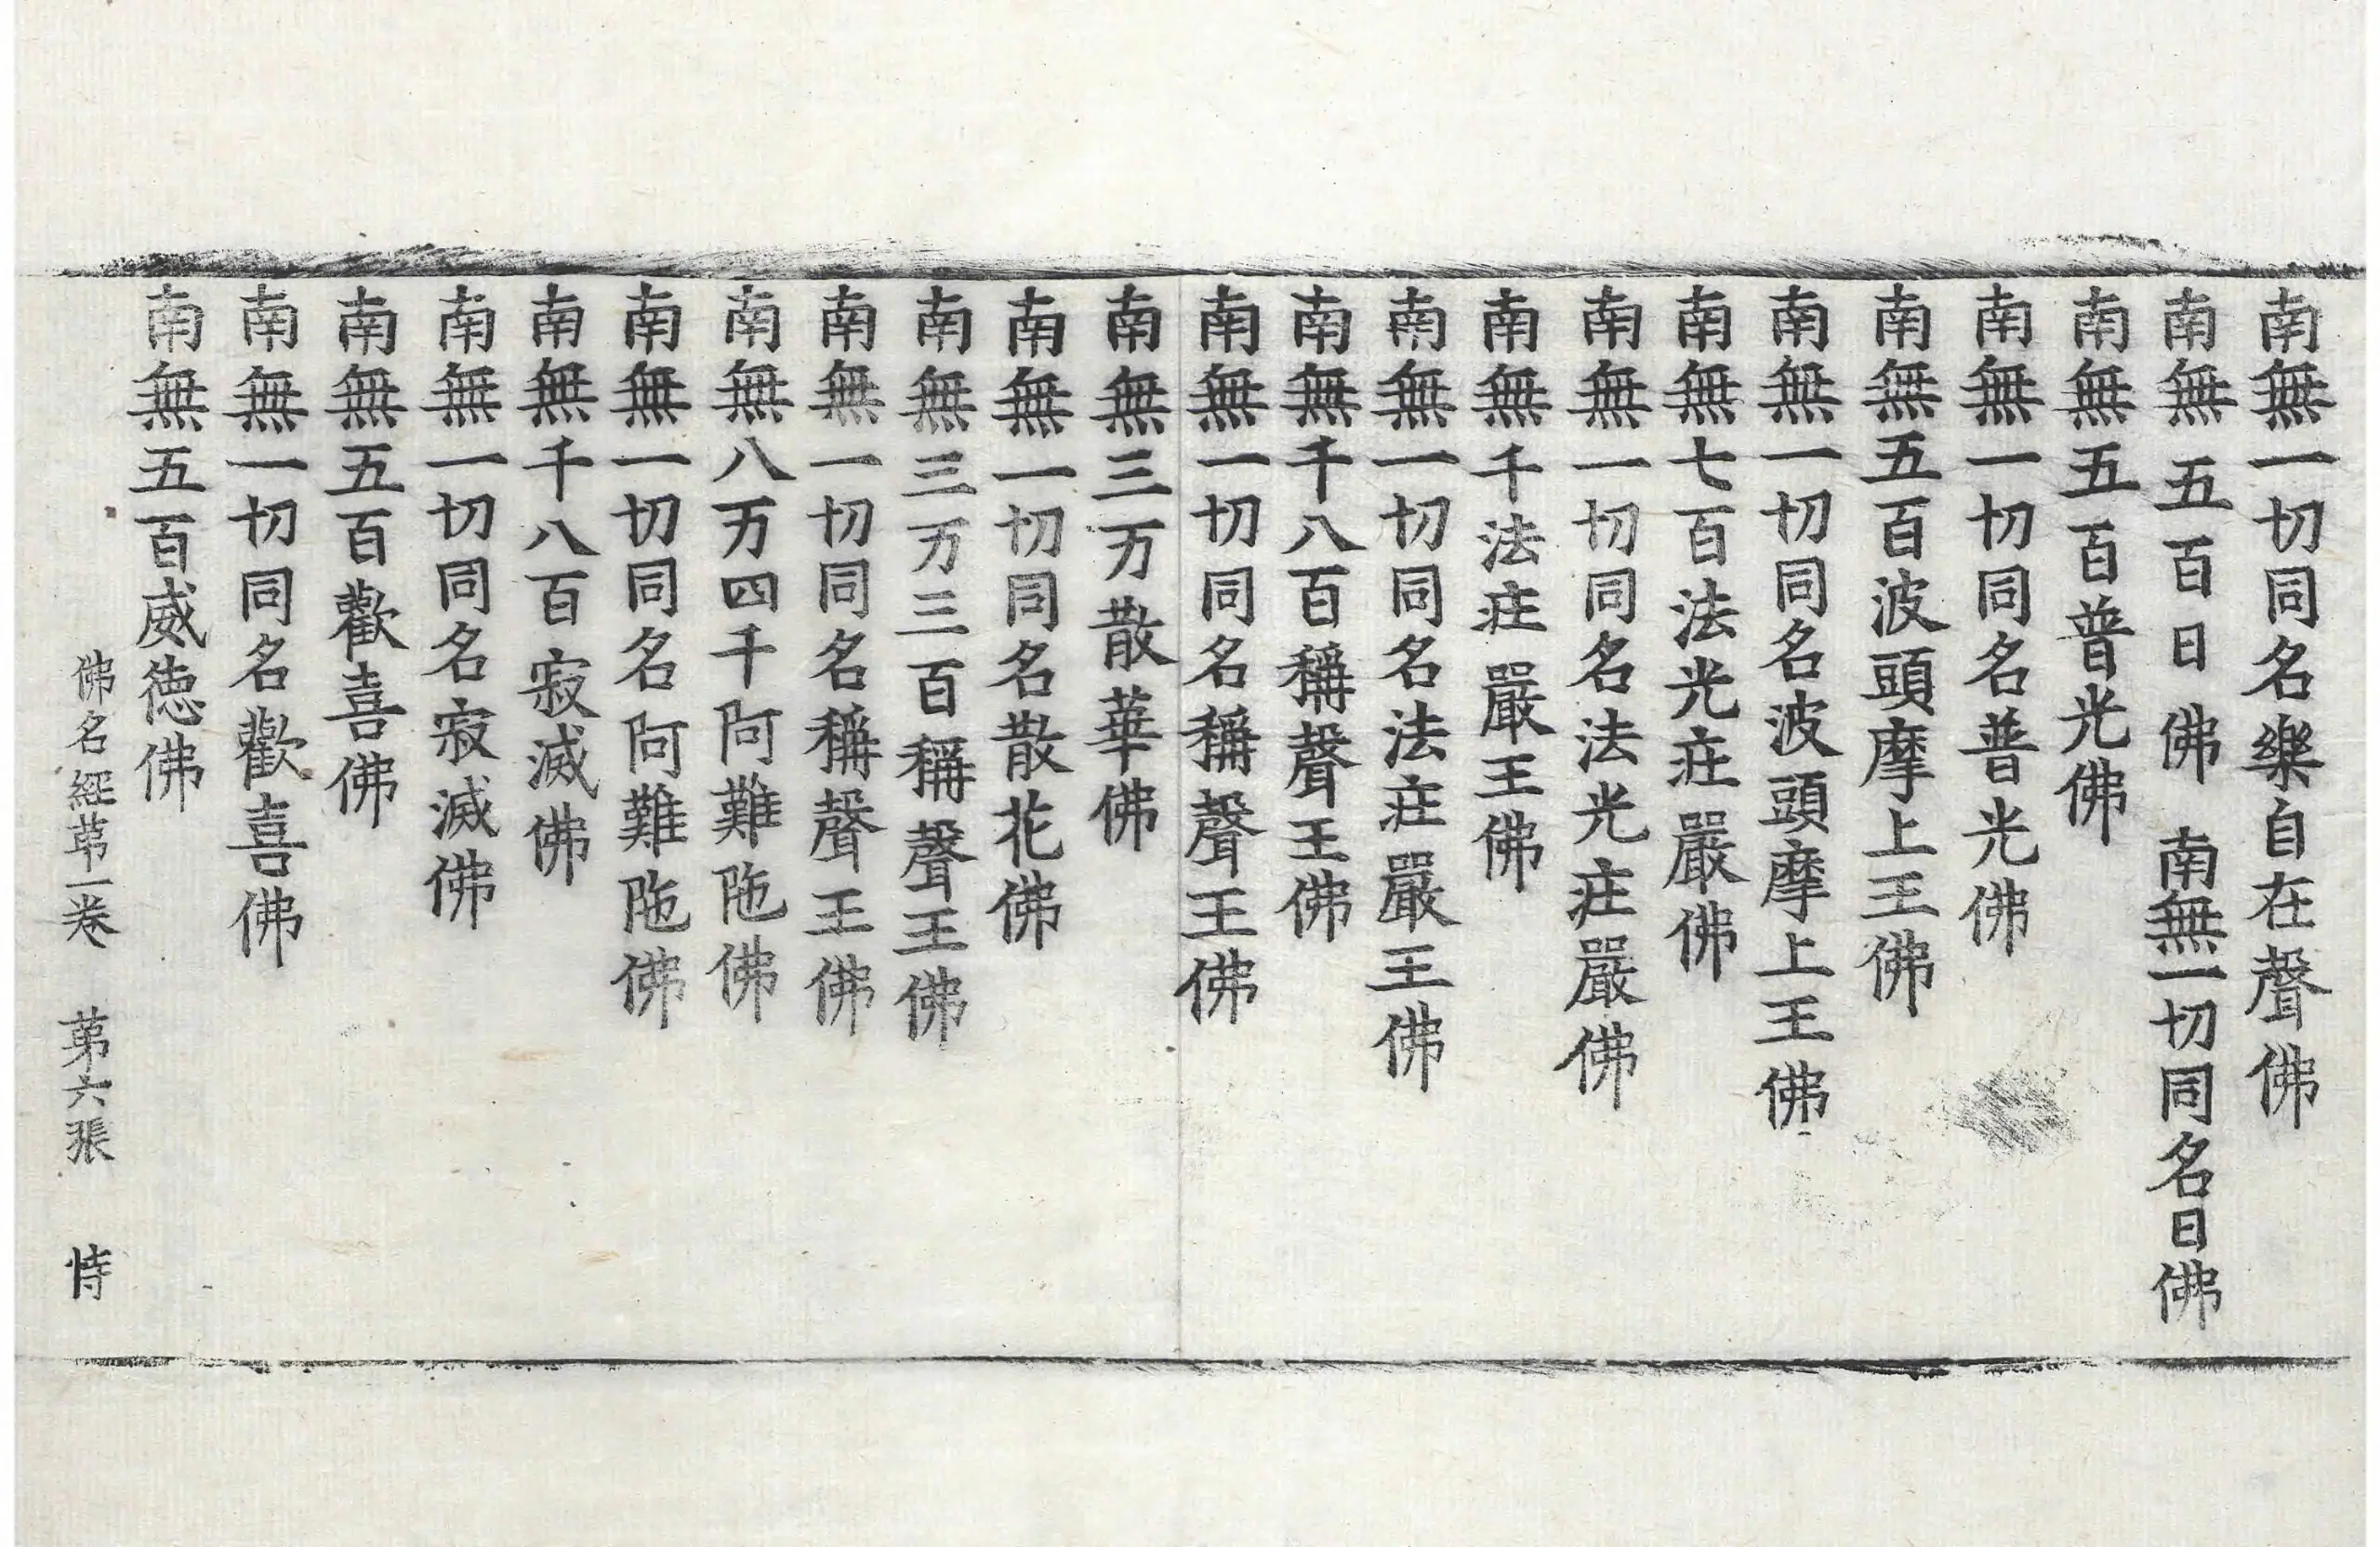 南無一切同名樂自在聲佛
南無五百日佛 南無一切同名日佛
南無五百普光佛
南無一切同名普光佛
南無五百波頭摩上王佛
南無一切同名波頭摩上王佛
南無七百法光庄嚴佛
南無一切同名法光庄嚴佛
南無千法庄嚴王佛
南無一切同名法庄嚴王佛
南無千八百稱聲王佛
南無一切同名稱聲王佛
南無三万散華佛
南無一切同名散花佛
南無三万三百稱聲王佛
南無一切同名稱聲王佛
南無八万四千阿難陁佛
南無一切同名阿難陁佛
南無千八百寂滅佛
南無一切同名寂滅佛
南無五百歡喜佛
南無一切同名歡喜佛
南無五百威德佛
佛名經苐一卷 苐六張 恃